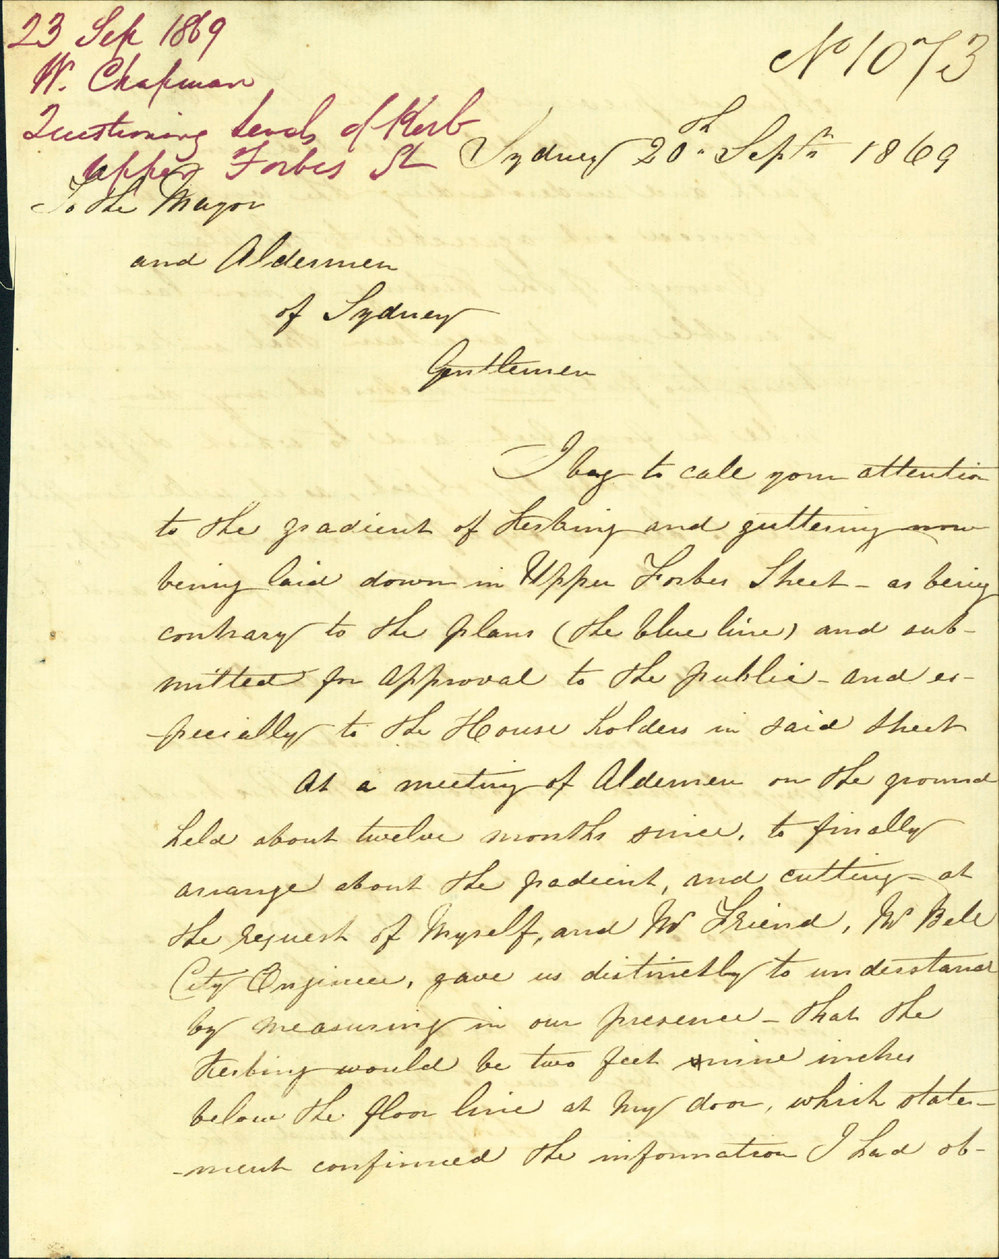 23 Sep 1869
W. Chapman
Questioning levels of Kerb
upper Forbes St
No 1073
Sydney 20th Septr 1869
To the Mayor
and Aldermen
of Sydney
Gentlemen
I beg to call your attention
to the gradient of Kerbing and guttering now
being laid down in Upper Forbes Street - as being
contrary to the plans (the blue line) and sub-
mitted for approval to the public - and es-
pecially to the House holders in said street
At a meeting of Aldermen on the ground
held about twelve months since, to finally
arrange about the gradient, and cutting - at
the request of Myself, and Mr Friend, Mr Bell
City Engineer, gave us distinctly to understand
by measuring in our presence - that the
Kerbing would be two feet nine inches
below the floor line at my door, which state-
-ment confirmed the information I had ob-